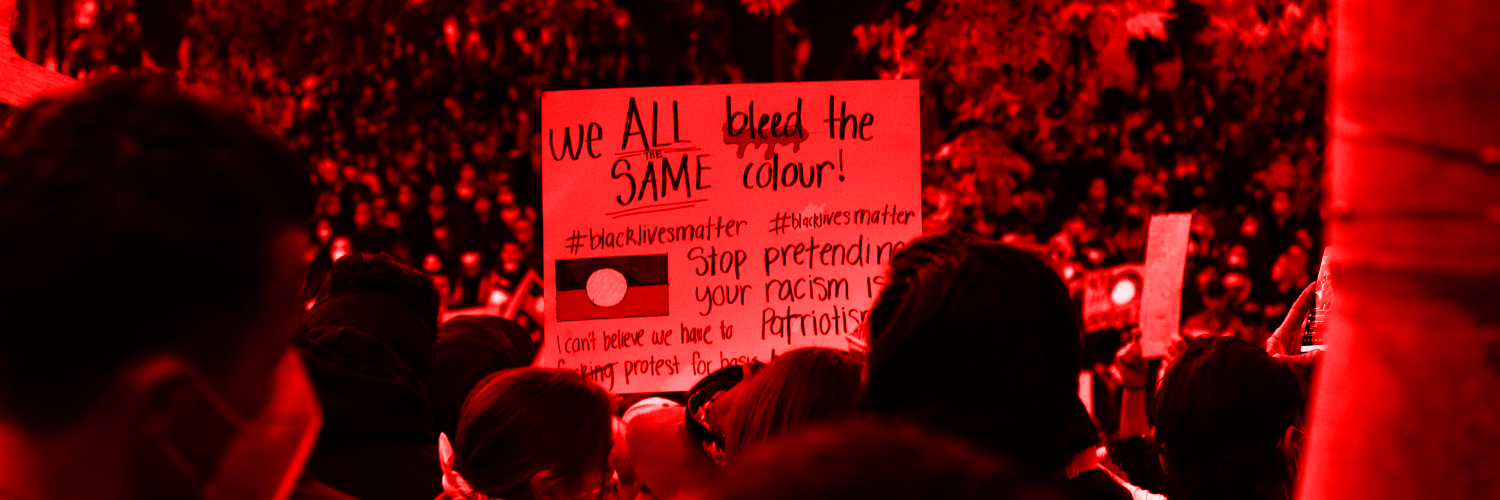 we ALL bleed the
THE
SAME colour!
#blacklivesmatter #blacklivesmatter
Stop pretending
your racism is
Patriotism
I can't believe we have to
protest for